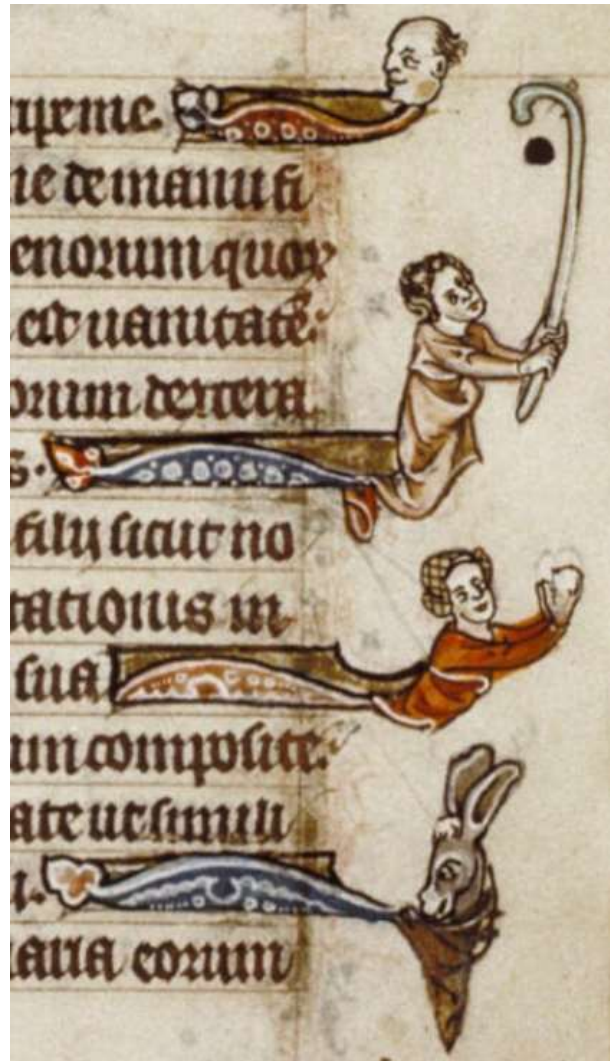 ripe me.
me de manu fi
enorum quoꝝ
est uanitatē·
orum dextera
s·
filij sicut no
tationis in
sua
um composite·
ate ut simili
i·
aria eorum